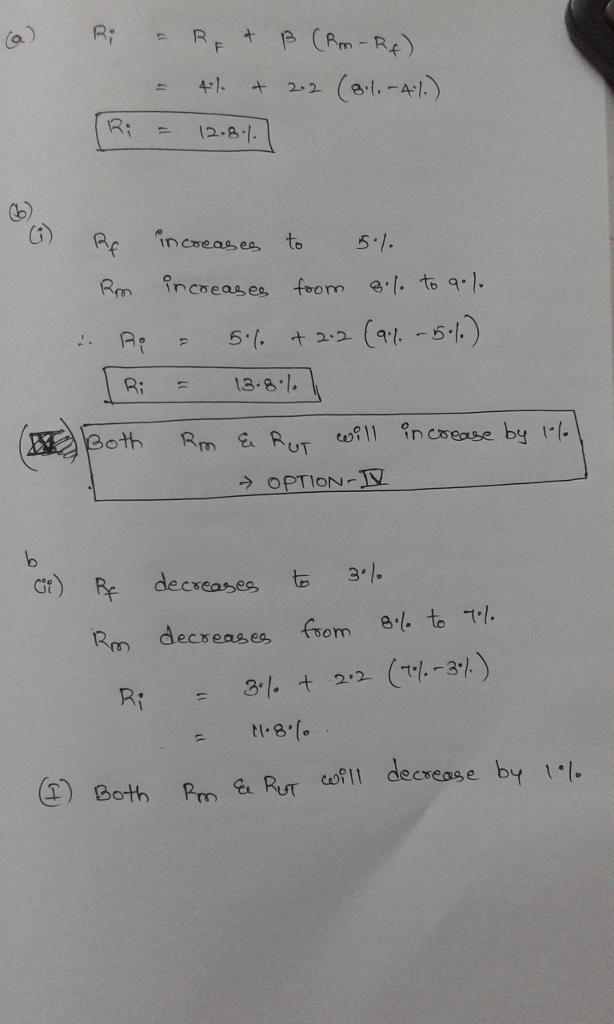 (a) Ri = RF + β (Rm - Rf)
= 4% + 2.2 (8% - 4%)
Ri = 12.8%
(b)
(i) Rf increases to 5%
Rm increases from 8% to 9%
∴ Ri = 5% + 2.2 (9% - 5%)
Ri = 13.8%
Both Rm & RUT will increase by 1%
→ OPTION-IV
b
(ii) Rf decreases to 3%
Rm decreases from 8% to 7%
Ri = 3% + 2.2 (7% - 3%)
= 11.8%
(I) Both Rm & RUT will decrease by 1%